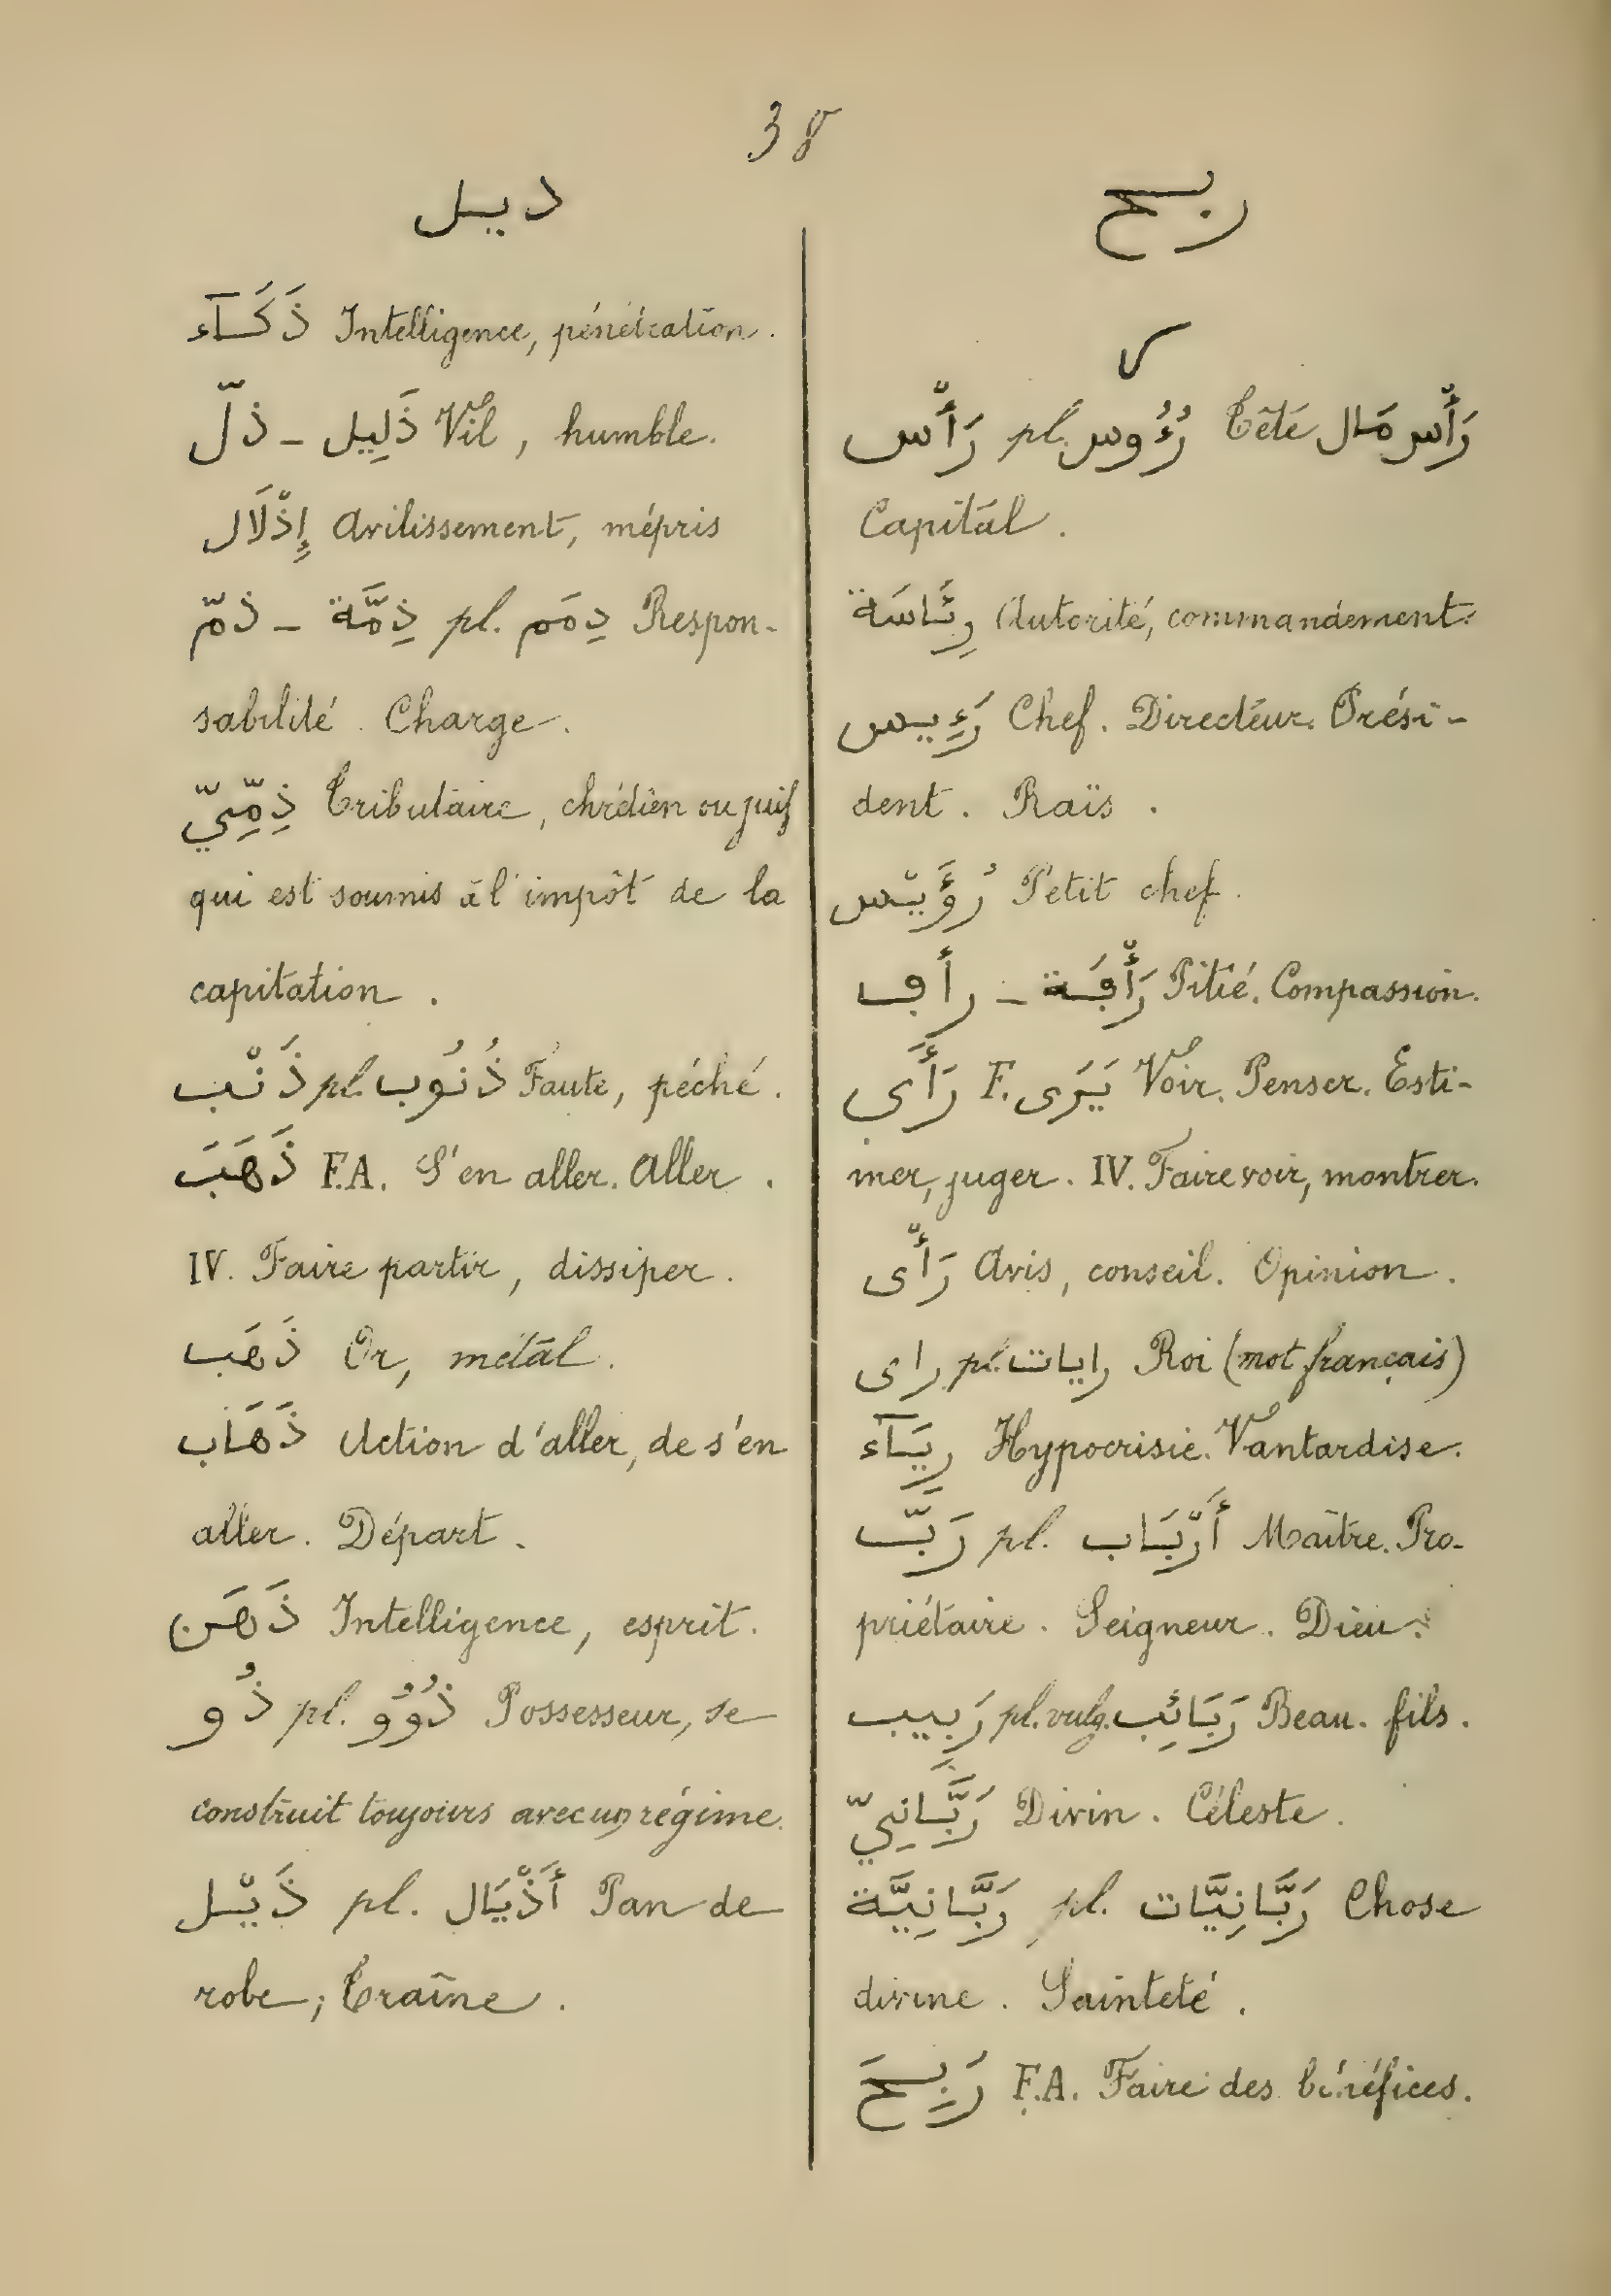 38
ذيل
ذَكَآء Intelligence, pénétration.
ذلّ – ذَلِيل Vil, humble.
إِذْلَال Avilissement, mépris
ذمّ – ذِمَّة pl. ذِمَم Respon-
sabilité. Charge.
ذِمِّيّ Tributaire, chrétien ou juif
qui est soumis à l'impôt de la
capitation.
ذَنْب pl. ذُنُوب Faute, péché.
ذَهَبَ F.A. S'en aller. Aller.
IV. Faire partir, dissiper.
ذَهَب Or, métal.
ذَهَاب Action d'aller, de s'en
aller. Départ.
ذَهَن Intelligence, esprit.
ذُو pl. ذُوُو Possesseur, se
construit toujours avec un régime.
ذَيْل pl. أَذْيَال Pan de
robe; Traîne.
ربح
ر
رَأْس pl. رُؤُوس Tête رَأْس مَال
Capital.
رِئَاسَة Autorité, commandement.
رَءِيس Chef. Directeur. Prési-
dent. Raïs.
رُؤَيْس Petit chef.
رأڢ – رَأْڢَة Pitié. Compassion.
رَأَى F. يَرَى Voir. Penser. Esti-
mer, juger. IV. Faire voir, montrer.
رَأْى Avis, conseil. Opinion.
راى pl. رايات Roi (mot français)
رِيَآء Hypocrisie. Vantardise.
رَبّ pl. أَرْبَاب Maître. Pro-
priétaire. Seigneur. Dieu.
رَبِيب pl. vulg. رَبَائِب Beau-fils.
رَبَّانِيّ Divin. Céleste.
رَبَّانِيَّة pl. رَبَّانِيَّات Chose
divine. Sainteté.
رَبِحَ F.A. Faire des bénéfices.